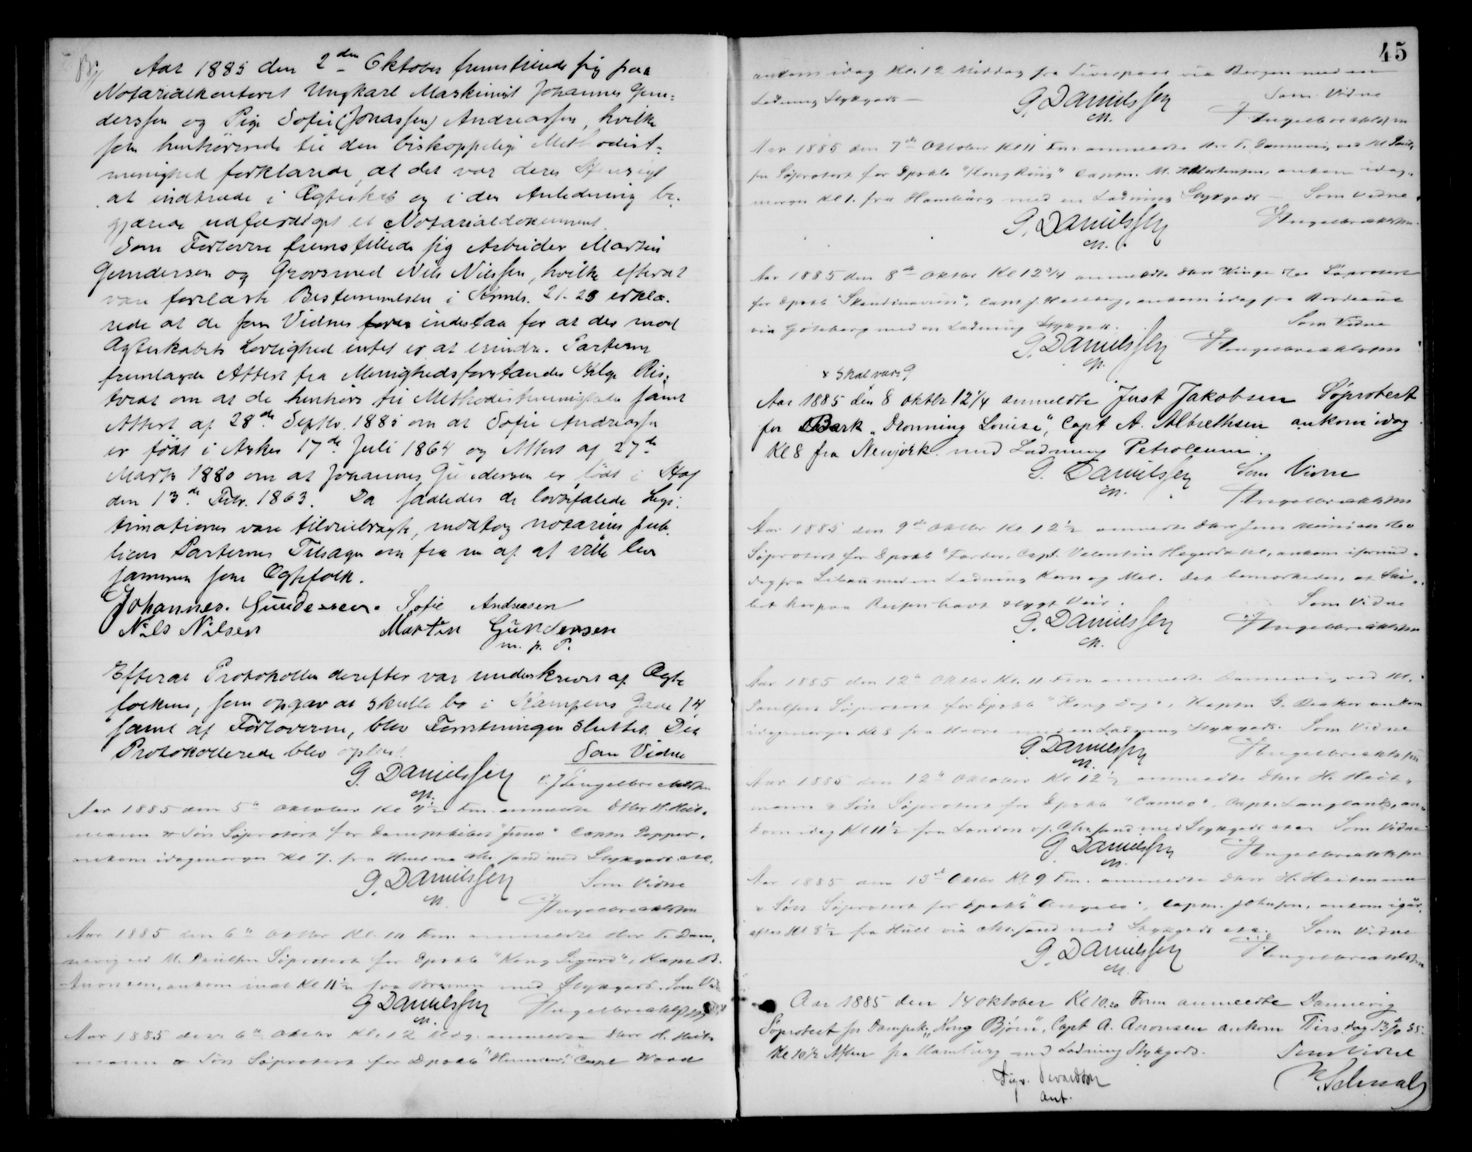 Aar 1885 den 2den Oktober fremstillede sig paa
Notarialkontoret Ungkarl Maskinist Johannes Gun-
dersen og Pige Sofie (Jonassen) Andreassen, hvilke
som henhørende til den biskoppelige Methodist-
menighed forklarede, at det var deres Hensigt
at indtræde i Ægteskab og i den Anledning be-
gjærede udfærdiget et Notarialdokument.
Som Forlovere fremstillede sig Arbeider Martin
Gundersen og Grovsmed Nils Nilssen, hvilke efterat
være forelæste Bestemmelsen i Krimls. 21-23 erklæ-
rede at de som Vidner indestaa for at der mod
Ægteskabets Lovlighed intet er at erindre. Parterne
fremlagde Attest fra Menighedsforstander Helge
om at de henhøre til Methodistmenigheden samt
Attest af 28de Septbr. 1885 om at Sofie Andreassen
er født i Asker 17de Juli 1864 og Attest af 27de
Marts 1880 om at Johannes Gundersen er født i
den 13de Febr. 1863. Da saaledes de lovbefalede Legi-
timationer vare tilveiebragte, modtog notarius pub-
licus Parternes Tilsagn om fra nu af at ville leve
sammen som Ægtefolk.
Johannes. Gundersen. Sofie Andreasen
Nils Nilsen Martin Gundersen
m. p. P.
Efterat Protokollen derefter var underskrevet af Ægte
folkene, som opgav at skulle bo i Kampens Gade 14
samt af Forloverne, blev Forretningen sluttet. Det
Protokollerede blev oplæst.
Som Vidne
G. Danielssen
Engelbrecktsen
Aar 1885 den 5te Oktober Kl Fm. anmeldte DHrr H. Heit-
mann & Søn Søprotest for Dampskibet "Juno" Captn Pepper,
ankom idagmorges Kl 7. fra Hull via Chr.sand med Stykgods
G. Danielssen Som Vidne
Engelbrecktsen
Aar 1885 den 6te Oktbr Kl. 10 Fm. anmeldte Hrr T. Dan-
nevig ved M. Poulsen Søprotest for Dpskb "Kong Sigurd",
Aronsen, ankom inat Kl 11½ fra Bremen med Stykgods. Som Vidne
G. Danielssen Engelbrecktsen
Aar 1885 den 6te Oktbr Kl. 12 Mdg. anmeldte Hrr H. Heit-
mann & Søn Søprotest for Dpskb Capt Wood
45
ankom idag Kl. 12 Middag fra Liverpool via Bergen med en
Ladning Stykgods —
G. Danielssen Som Vidne
Engelbrecktsen
Aar 1885 den 7de Oktober Kl 11 Fm anmeldte Hrr T. Dannevig ved M. Poul-
sen Søprotest for Dpskb "Kong Ring" Captn. M. Mortensen, ankom idag-
morges Kl 1. fra Hamburg med en Ladning Stykgods — Som Vidne
G. Danielssen Engelbrecktsen
Aar 1885 den 8de Oktbr Kl 12¼ anmeldte Hrr Søprotest
for Dpskb "Skandinavien", Capt J. ankom idag fra Bordeaux
via Gøteborg med en Ladning Stykgods.
Som Vidne
G. Danielssen Engelbrecktsen
x skal være 9
Aar 1885 den 8 oktbr 12¼ anmeldte Just Jakobsen Søprotest
for Bark "Dronning Louise", Capt A. Albrethsen ankom idag
Kl 8 fra Newjork med Ladning Petroleum.
G. Danielssen Som Vidne
Engelbrecktsen
Aar 1885 den 9de Oktbr Kl 12½ anmeldte
Søprotest for Dpskb "Fardør", Capt. Valentin Hegerdahl, ankom
dag fra Libau med en Ladning Korn og Mel. Det bemærkedes at Ski-
bet har paa Reisen havt stygt Veir.
Som Vidne
G. Danielssen Engelbrecktsen
Aar 1885 den 12te Oktober Kl. 11 Fm anmeldte Dannevig ved M.
Poulsen Søprotest for Dpskb "Kong Dag", Kaptn G. ankom
idagmorges Kl 8 fra Havre med en Ladning Stykgods. Som Vidne
G. Danielssen Engelbrecktsen
Aar 1885 den 12te Oktober Kl 12½ anmeldte DHrr H. Heit-
mann & Søn Søprotest for Dpskb "Cameo", Captn. Langlands, an-
kom idag Kl 11½ fra London og Chr.sand med Stykgods Som Vidne
G. Danielssen Engelbrecktsen
Aar 1885 den 13de Oktbr Kl 9 Fm. anmeldte DHrr H. Heitmann
& Søn Søprotest for Dpskb "Angelo", Captn. Johnson, ankom igår-
aftes Kl 8½ fra Hull via Chr.sand med Stykgods Som Vidne
G. Danielssen Engelbrecktsen
Aar 1885 den 14 Oktober Kl 10 Form anmeldte Dannevig
Søprotest for Dampsk. "Kong Bjørn", Capt A. Aronsen ankom Tirsdag 13/10 85
Kl 10½ Aften fra Hamburg med Ladning Stykgods.
Som Vidne
Aut.